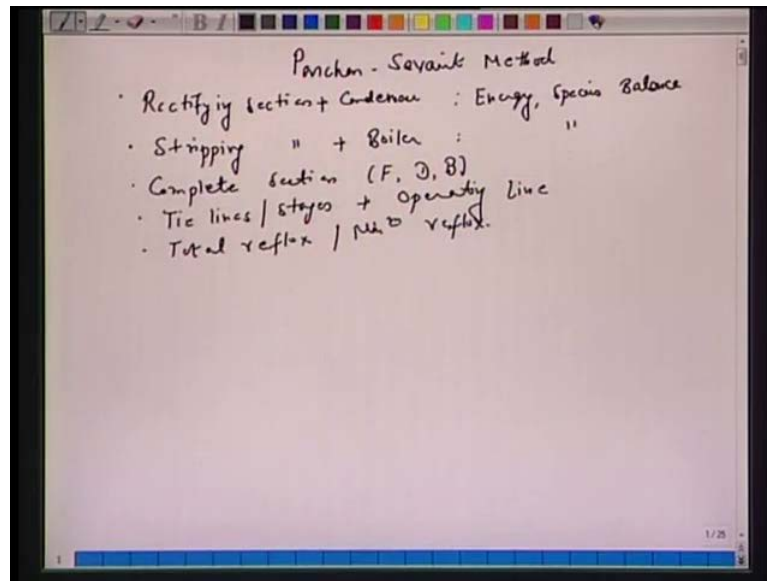 Ponchon - Savarit Method
· Rectifying section + Condenser : Energy, Species Balance
· Stripping " + Boiler : "
· Complete section (F, D, B)
· Tie lines / stages + Operating Line
· Total reflux / Min reflux.
1/25
1